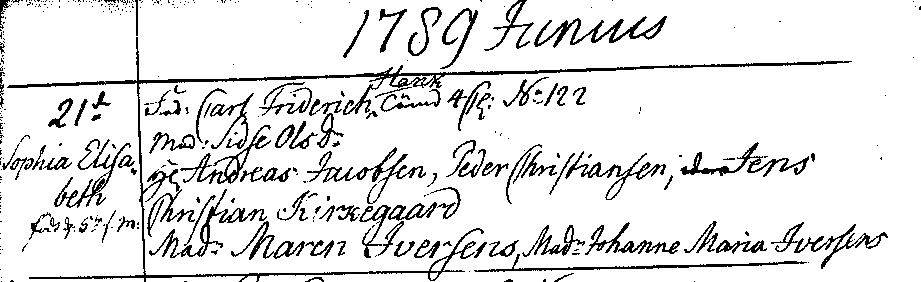 1789 Junius
21de
Sophia Elisa-
beth
Fad: Carl Friderich Hank 4 No 122
Mad: Sidse Olsdr
Hr Andreas Jacobsen, Peder Christiansen, Jens
Christian Kirkegaard
Madm Maren Iversens, Madm Johanne Maria Iversens